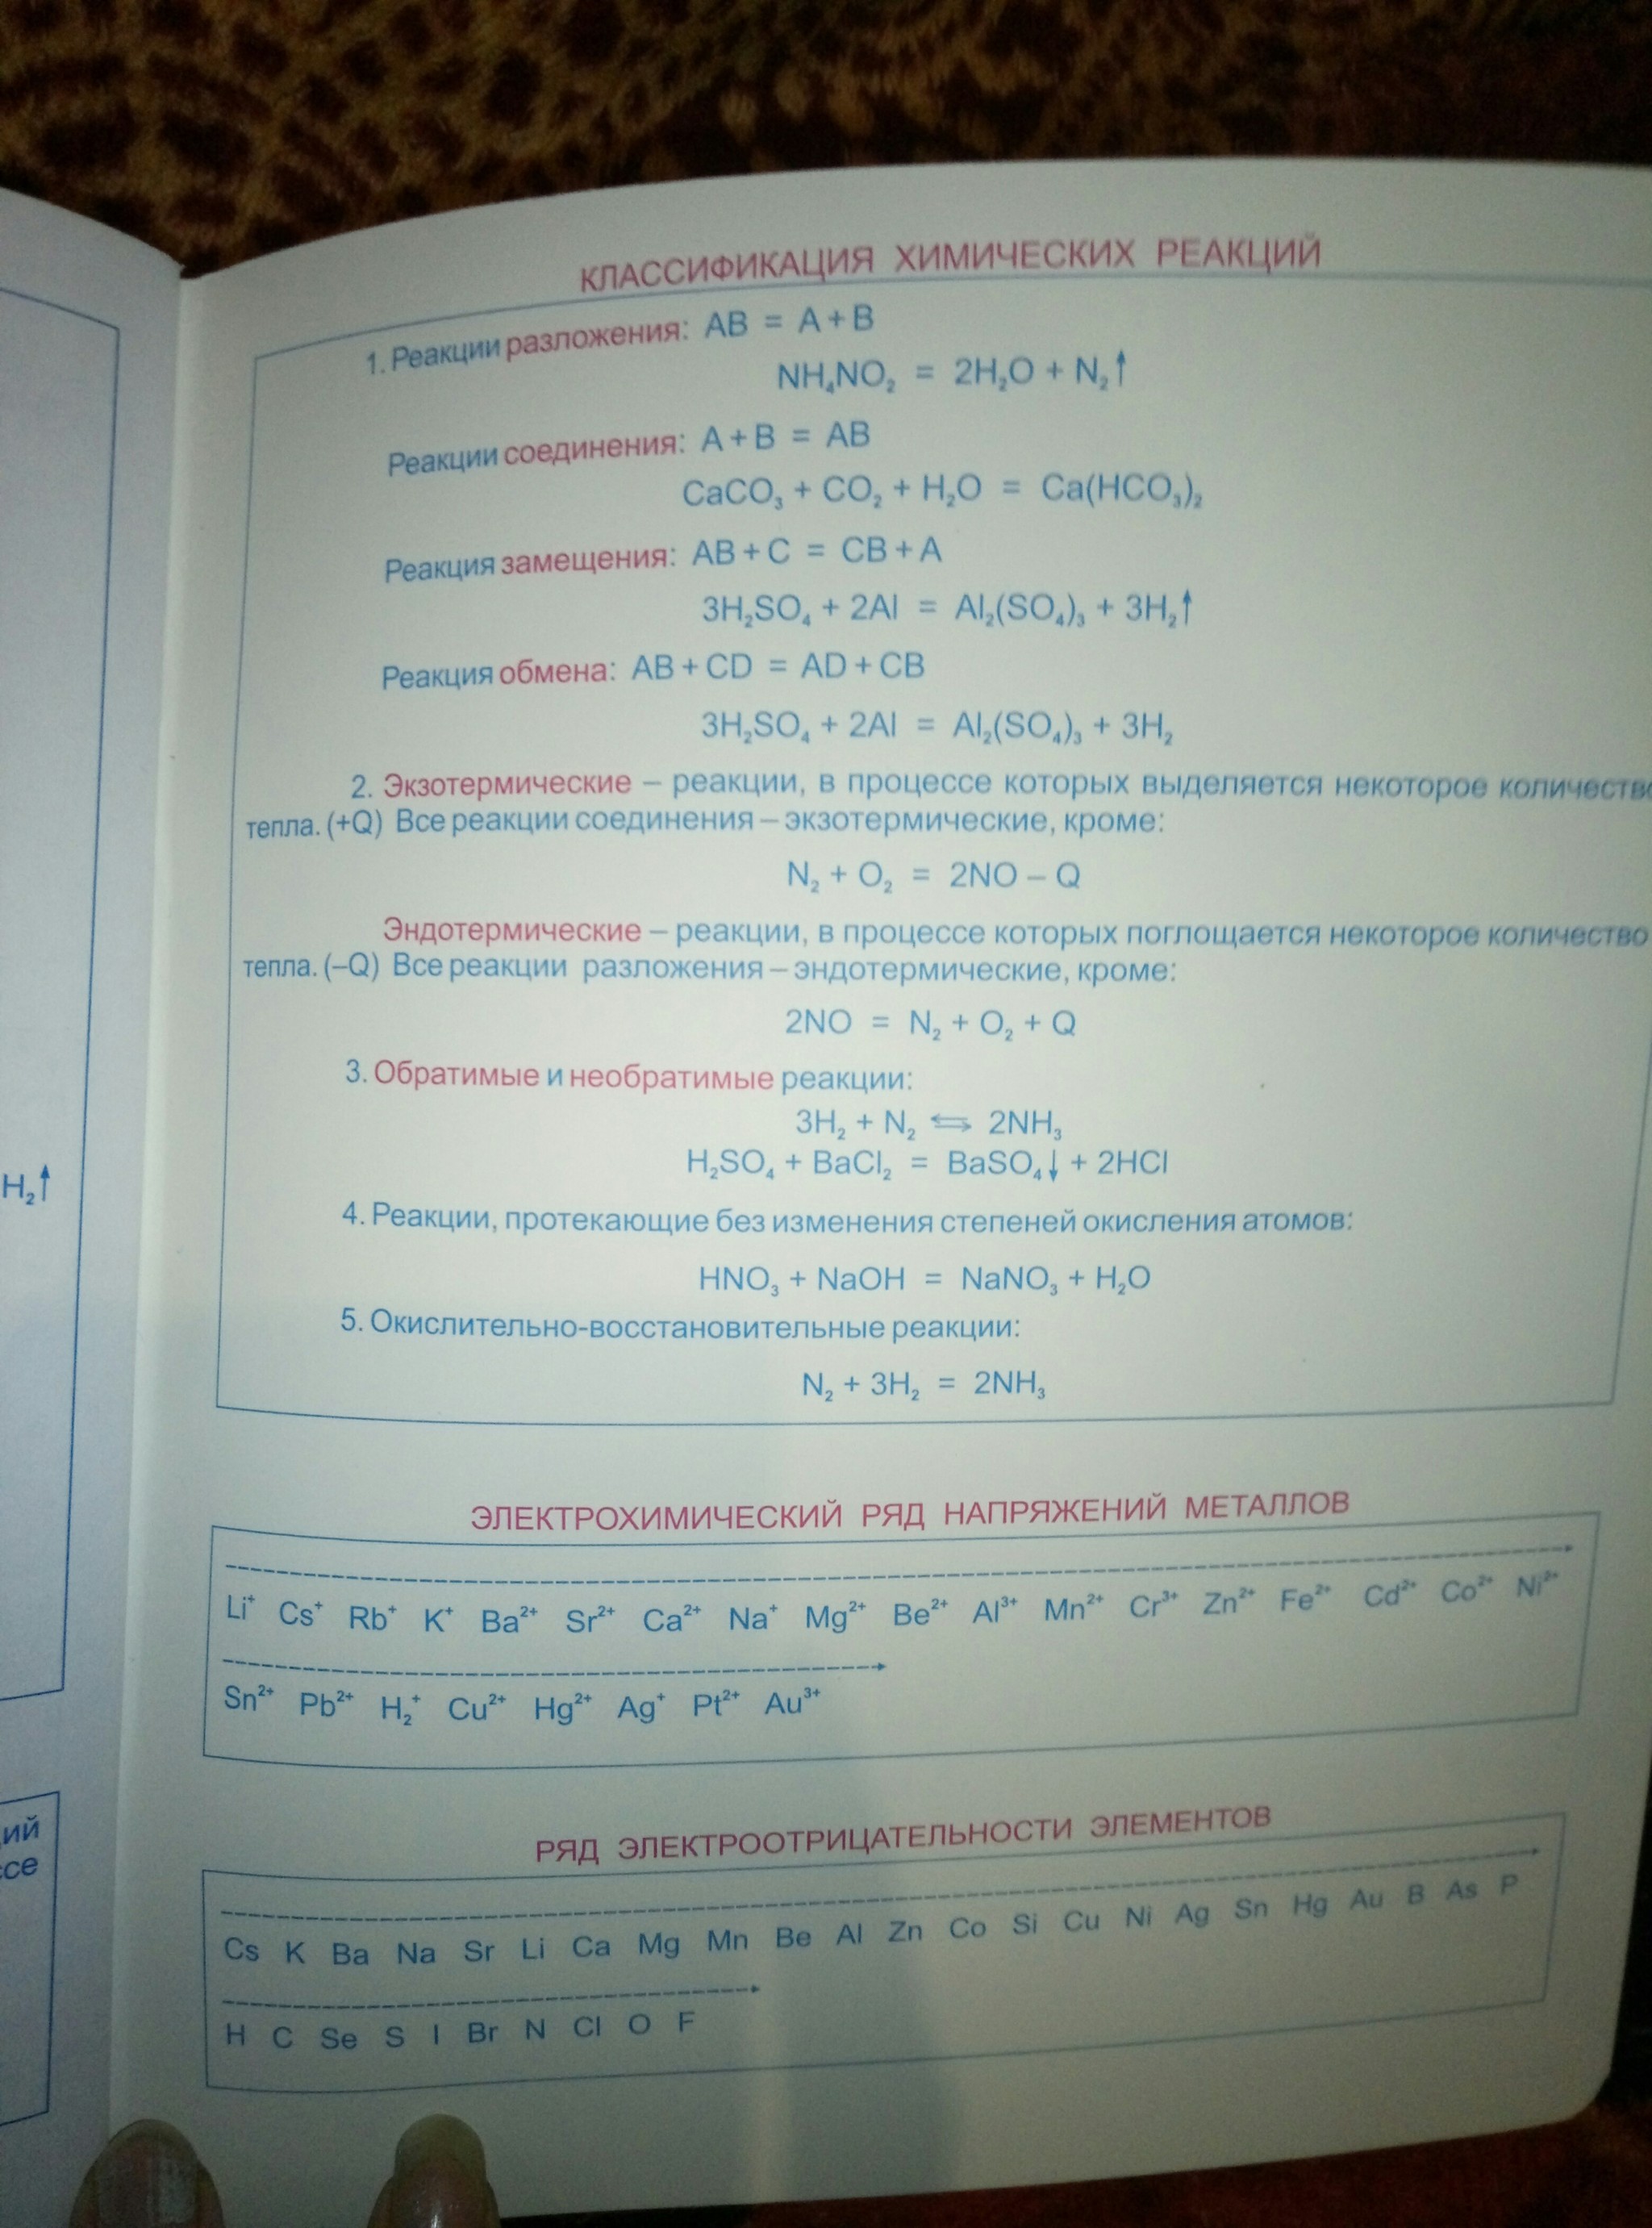 КЛАССИФИКАЦИЯ ХИМИЧЕСКИХ РЕАКЦИЙ
1. Реакции разложения: AB = A + B
NH₄NO₂ = 2H₂O + N₂↑
Реакции соединения: A + B = AB
CaCO₃ + CO₂ + H₂O = Ca(HCO₃)₂
Реакция замещения: AB + C = CB + A
3H₂SO₄ + 2Al = Al₂(SO₄)₃ + 3H₂↑
Реакция обмена: AB + CD = AD + CB
3H₂SO₄ + 2Al = Al₂(SO₄)₃ + 3H₂
2. Экзотермические – реакции, в процессе которых выделяется некоторое количество
тепла. (+Q) Все реакции соединения – экзотермические, кроме:
N₂ + O₂ = 2NO – Q
Эндотермические – реакции, в процессе которых поглощается некоторое количество
тепла. (–Q) Все реакции разложения – эндотермические, кроме:
2NO = N₂ + O₂ + Q
3. Обратимые и необратимые реакции:
3H₂ + N₂ ⇆ 2NH₃
H₂SO₄ + BaCl₂ = BaSO₄↓ + 2HCl
4. Реакции, протекающие без изменения степеней окисления атомов:
HNO₃ + NaOH = NaNO₃ + H₂O
5. Окислительно-восстановительные реакции:
N₂ + 3H₂ = 2NH₃
ЭЛЕКТРОХИМИЧЕСКИЙ РЯД НАПРЯЖЕНИЙ МЕТАЛЛОВ
Li⁺ Cs⁺ Rb⁺ K⁺ Ba²⁺ Sr²⁺ Ca²⁺ Na⁺ Mg²⁺ Be²⁺ Al³⁺ Mn²⁺ Cr³⁺ Zn²⁺ Fe²⁺ Cd²⁺ Co²⁺ Ni²⁺
Sn²⁺ Pb²⁺ H₂⁺ Cu²⁺ Hg²⁺ Ag⁺ Pt²⁺ Au³⁺
РЯД ЭЛЕКТРООТРИЦАТЕЛЬНОСТИ ЭЛЕМЕНТОВ
Cs K Ba Na Sr Li Ca Mg Mn Be Al Zn Co Si Cu Ni Ag Sn Hg Au B As P
H C Se S I Br N Cl O F
H₂↑
ий
се